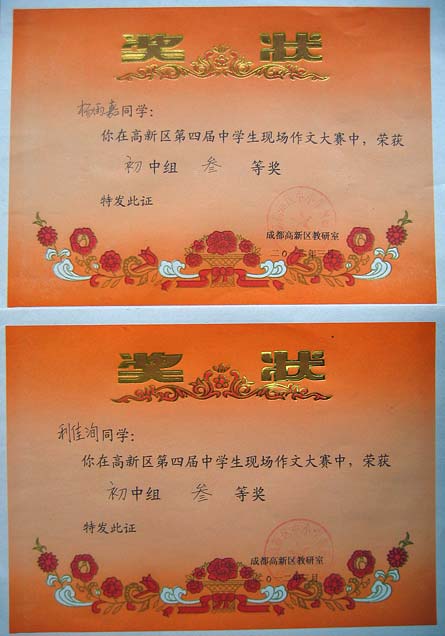 奖状
杨雨嘉同学：
你在高新区第四届中学生现场作文大赛中，荣获
初中组 叁 等奖
特发此证
成都高新区教研室
奖状
利佳洵同学：
你在高新区第四届中学生现场作文大赛中，荣获
初中组 叁 等奖
特发此证
成都高新区教研室